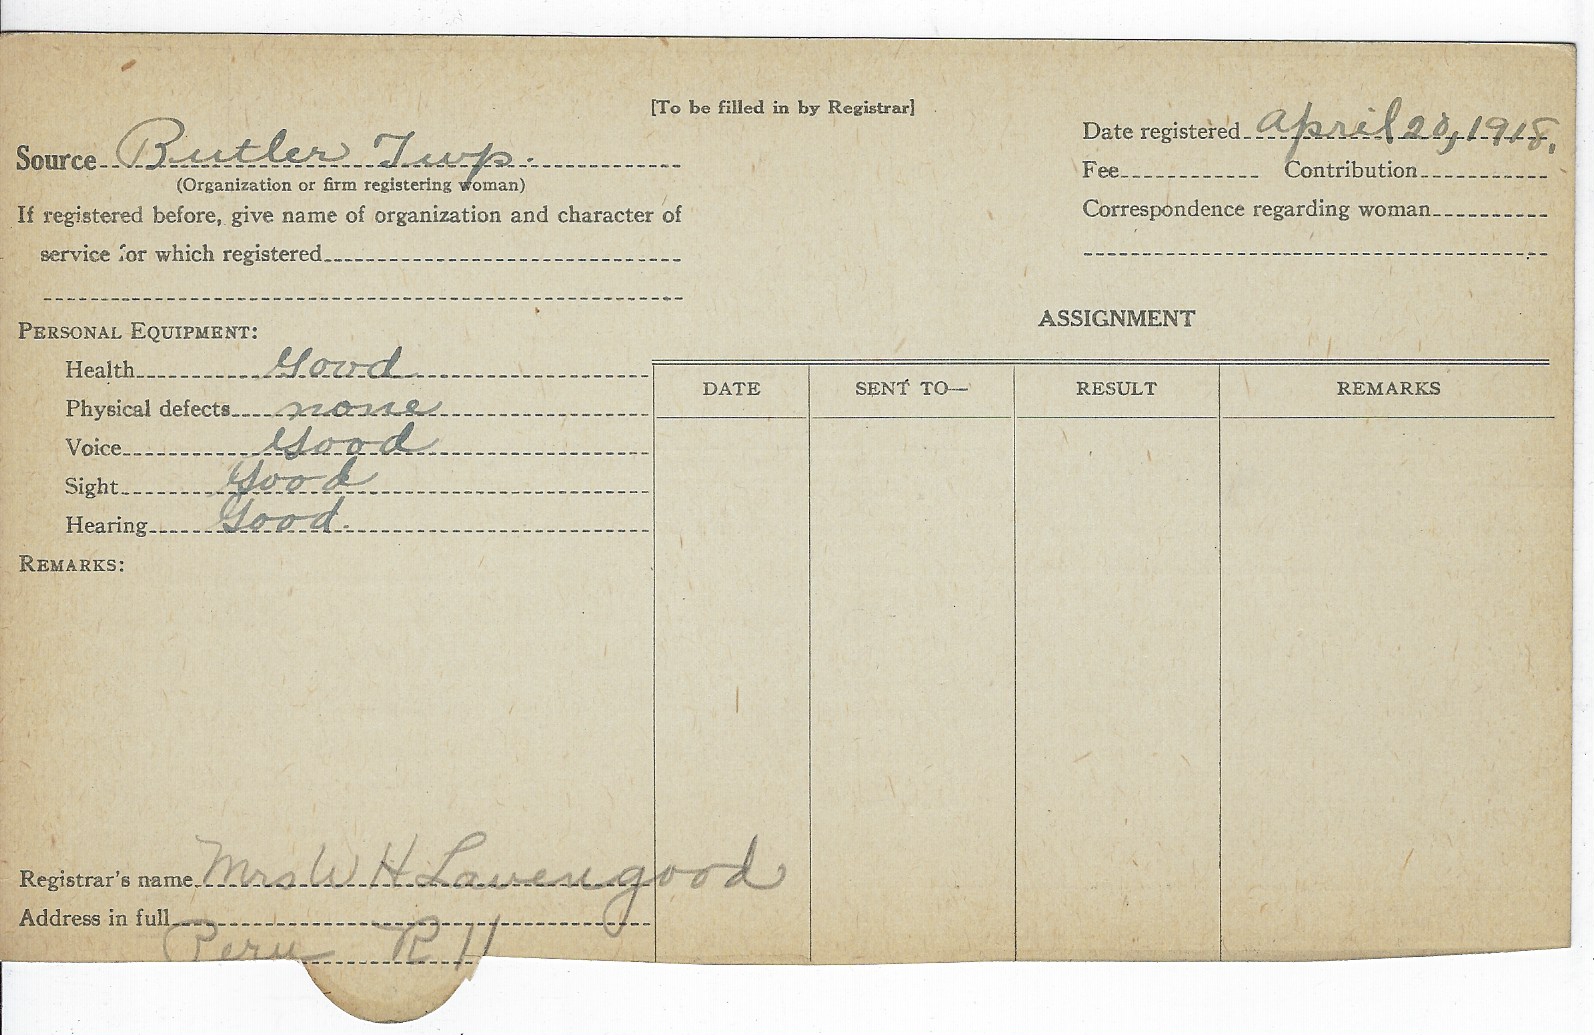 [To be filled in by Registrar]
Source Butler Twp.
(Organization or firm registering woman)
If registered before, give name of organization and character of
service for which registered
Date registered April 20, 1918.
Fee Contribution
Correspondence regarding woman
PERSONAL EQUIPMENT:
Health Good
Physical defects none
Voice Good
Sight Good
Hearing Good.
REMARKS:
ASSIGNMENT
DATE SENT TO— RESULT REMARKS
Registrar's name Mrs W H Lavengood
Address in full
Peru R 11